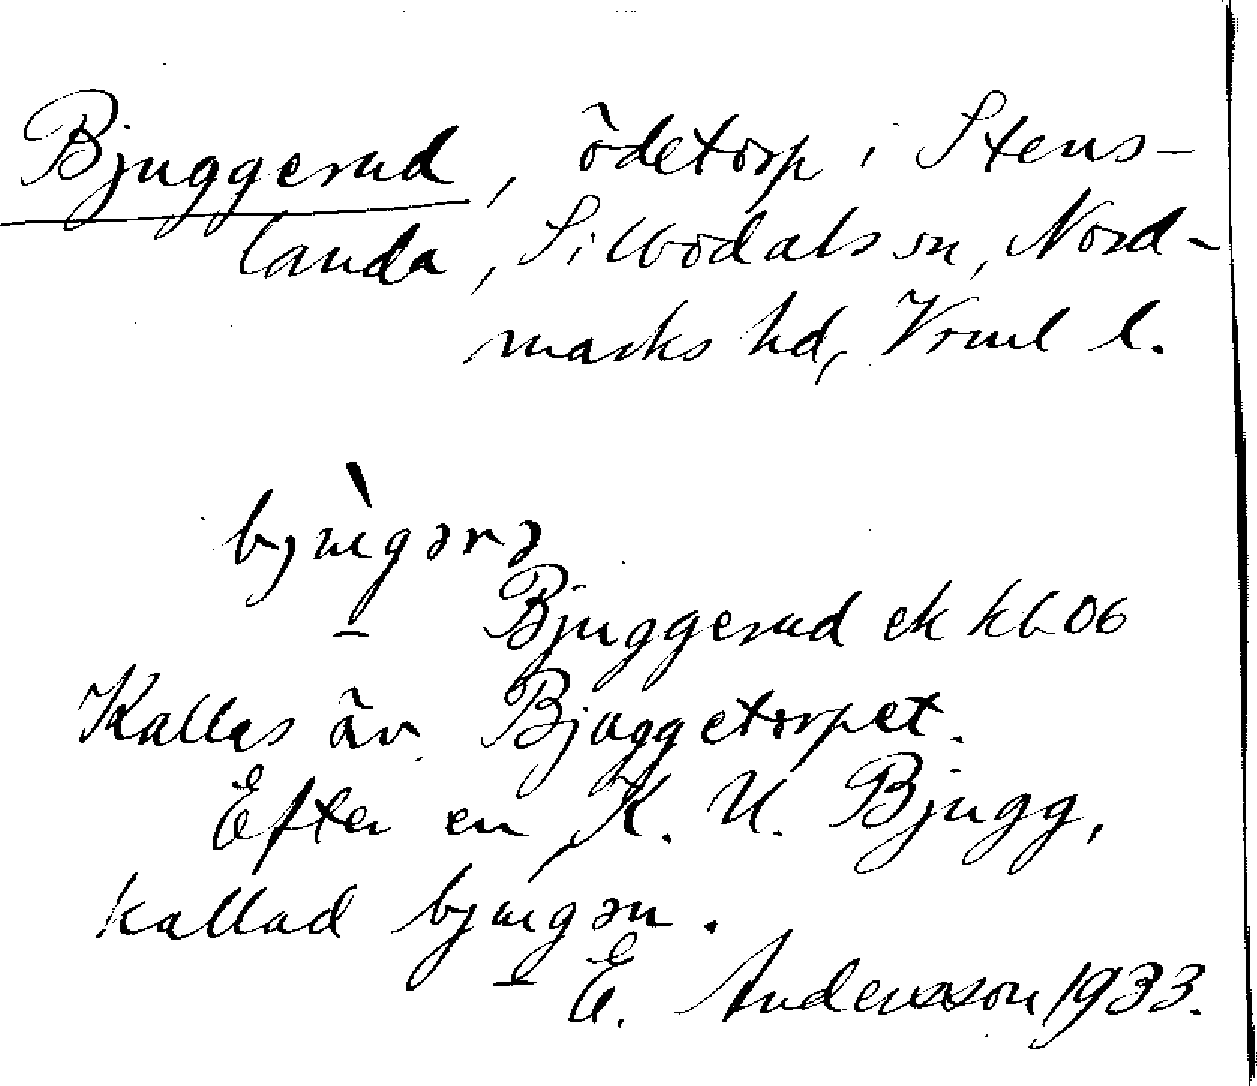 Bjuggerud, ödetorp i Stens-
landa, Silbodals sn, Nord-
marks hd, Vrml l.
Bjuggerud ek kb 06
Kallas äv. Bjuggetorpet.
Efter en K. U. Bjugg,
kallad
E. Andersson 1933.